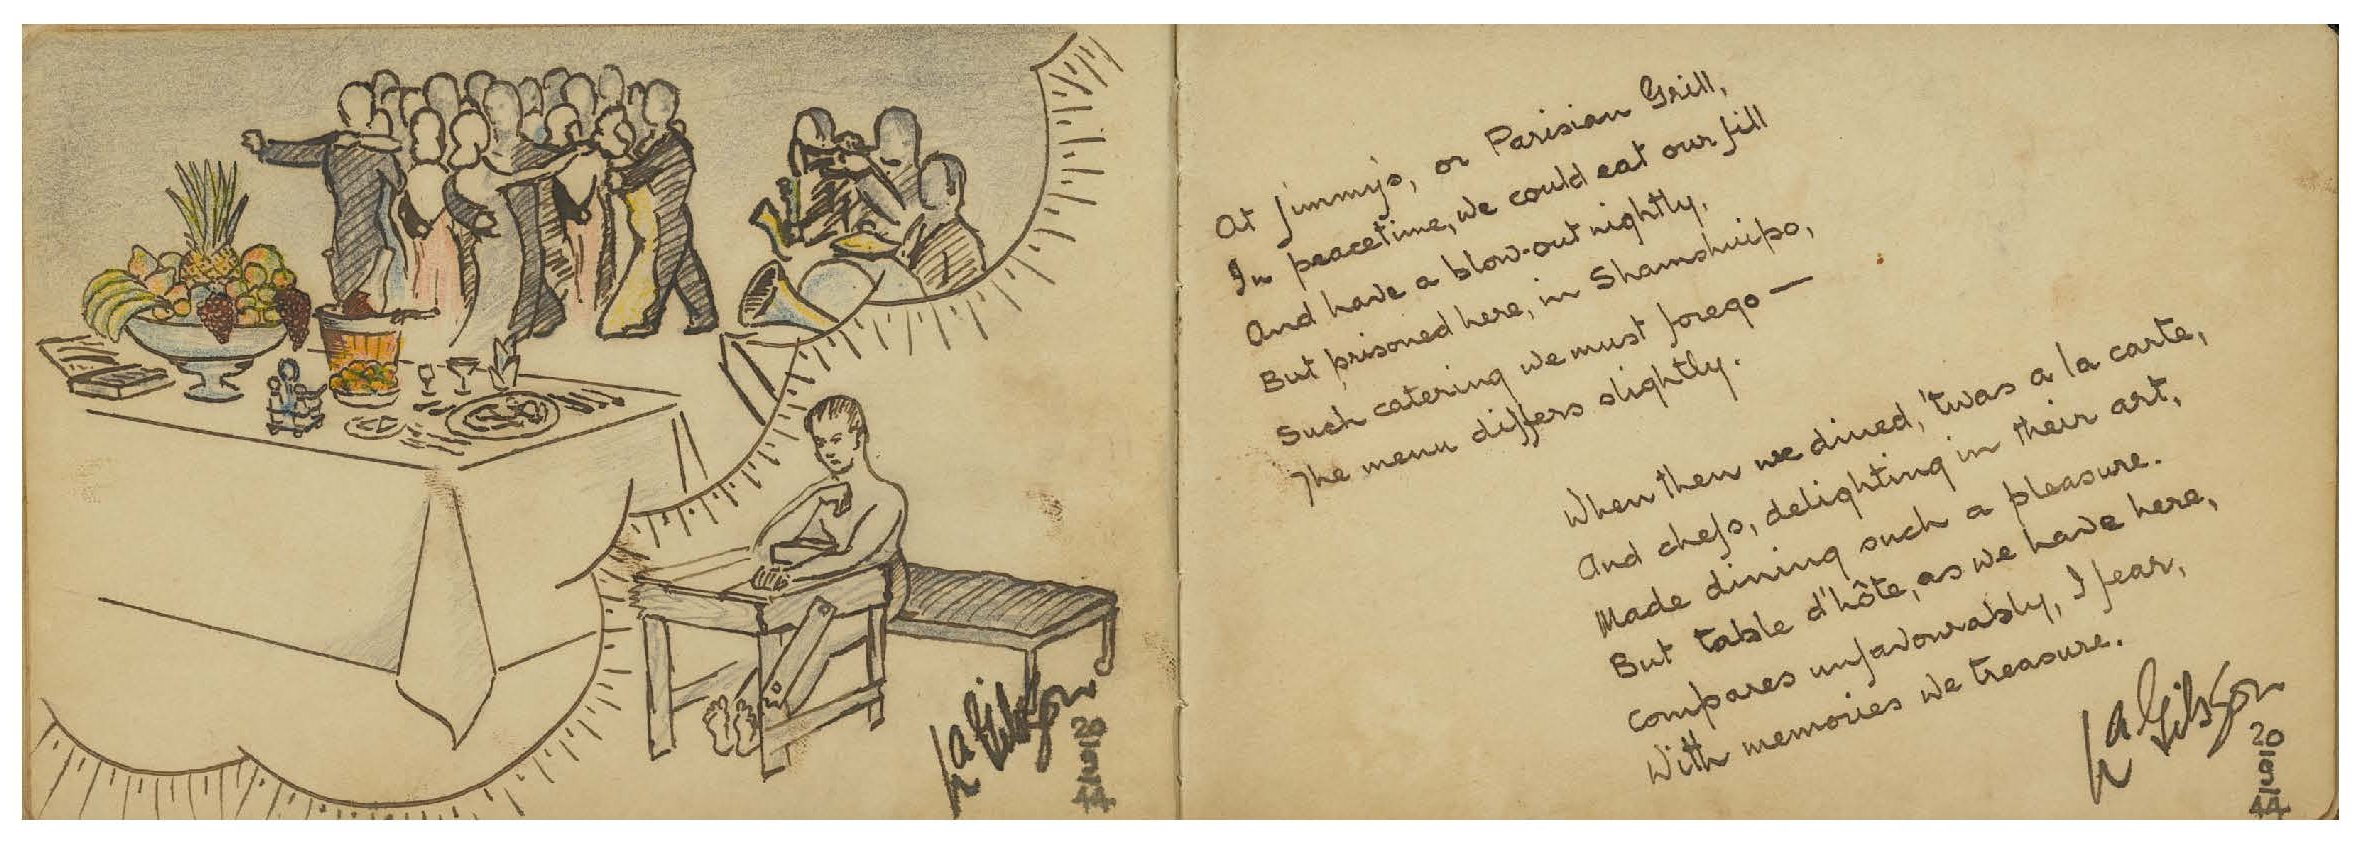 At Jimmy's, or Parisian Grill,
In peacetime, we could eat our fill
And have a blow-out nightly.
But prisoned here, in Shamshuipo,
Such catering we must forego —
The menu differs slightly.
When then we dined, 'twas a la carte,
And chefs, delighting in their art,
Made dining such a pleasure.
But table d'hôte, as we have here,
Compares unfavourably, I fear,
With memories we treasure.
Gibson
20
5
44
Gibson
20
5
44